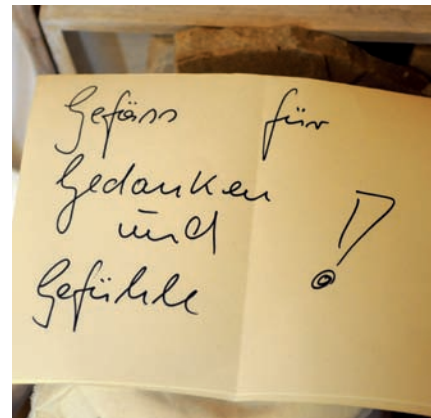 Gefäss für
Gedanken
und
Gefühle !